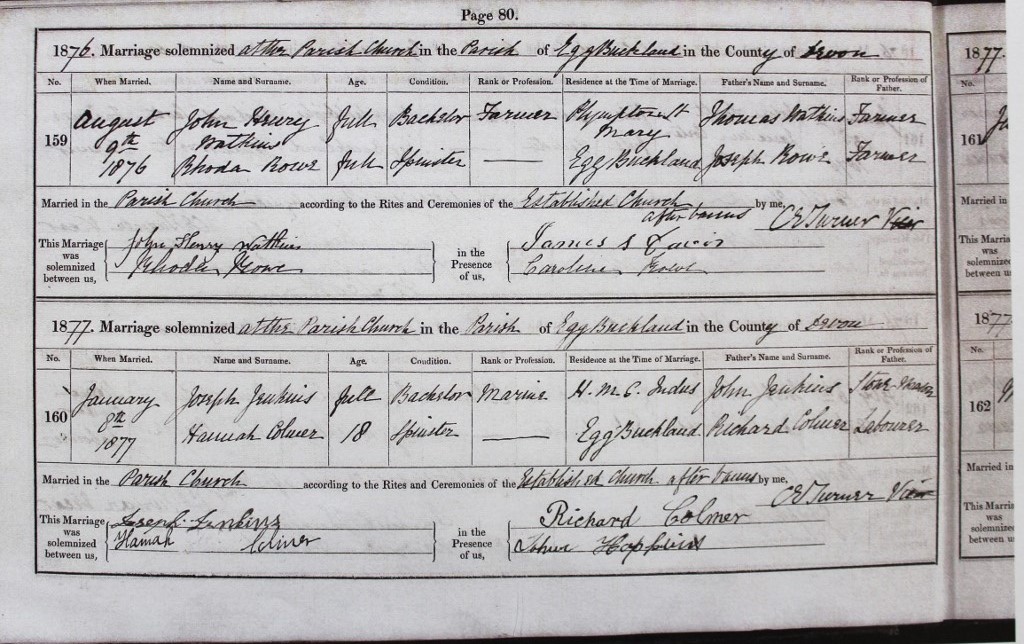 Page 80.
1876. Marriage solemnized at the Parish Church in the Parish of Egg Buckland in the County of Devon
No. When Married. Name and Surname. Age. Condition. Rank or Profession. Residence at the Time of Marriage. Father's Name and Surname. Rank or Profession of Father.
159 August 9th 1876 John Henry Watkins full Bachelor Farmer Plympton St Mary Thomas Watkins Farmer
Rhoda Rowe full Spinster — Egg Buckland Joseph Rowe Farmer
Married in the Parish Church according to the Rites and Ceremonies of the Established Church after banns by me, Turner Vicar
This Marriage was solemnized between us,
John Henry Watkins
Rhoda Rowe
in the Presence of us,
James S
Caroline Rowe
1877. Marriage solemnized at the Parish Church in the Parish of Egg Buckland in the County of Devon
No. When Married. Name and Surname. Age. Condition. Rank or Profession. Residence at the Time of Marriage. Father's Name and Surname. Rank or Profession of Father.
160 January 8th 1877 Joseph Jenkins full Bachelor Marine H.M.S. Indus John Jenkins Stone
Hannah Colmer 18 Spinster — Egg Buckland Richard Colmer Labourer
Married in the Parish Church according to the Rites and Ceremonies of the Established Church after banns by me, Turner Vicar
This Marriage was solemnized between us,
Joseph Jenkins
Hannah Colmer
in the Presence of us,
Richard Colmer
1877.
No.
161
Married in
This Marria
was
solemnized
between us,
1877
No.
162
Married in
This Marria
was
solemnized
between us,